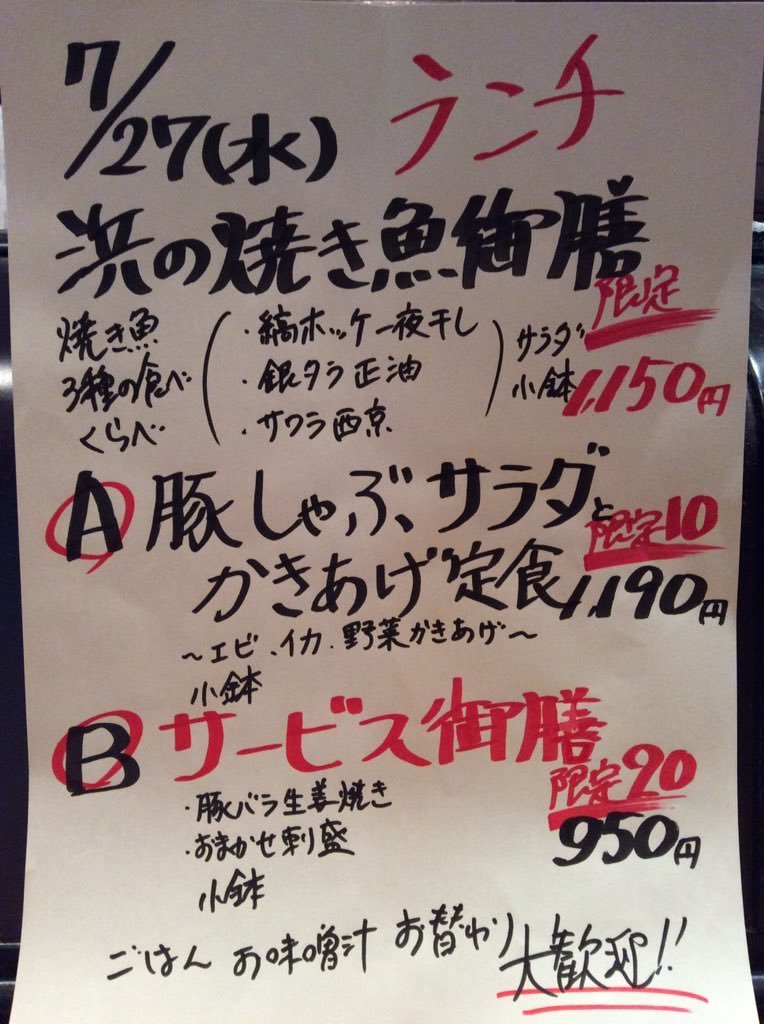 7/27(水) ランチ
浜の焼き魚御膳
限定
焼き魚
3種の食べ
くらべ
・縞ホッケ一夜干し
・銀タラ正油
・サワラ西京
サラダ
小鉢
1,150円
A 豚しゃぶ、サラダと
限定10
かきあげ定食 1,190円
〜エビ、イカ、野菜かきあげ〜
小鉢
B サービス御膳
限定20
・豚バラ生姜焼き
・おまかせ刺盛
950円
小鉢
ごはん お味噌汁 お替わり 大歓迎!!